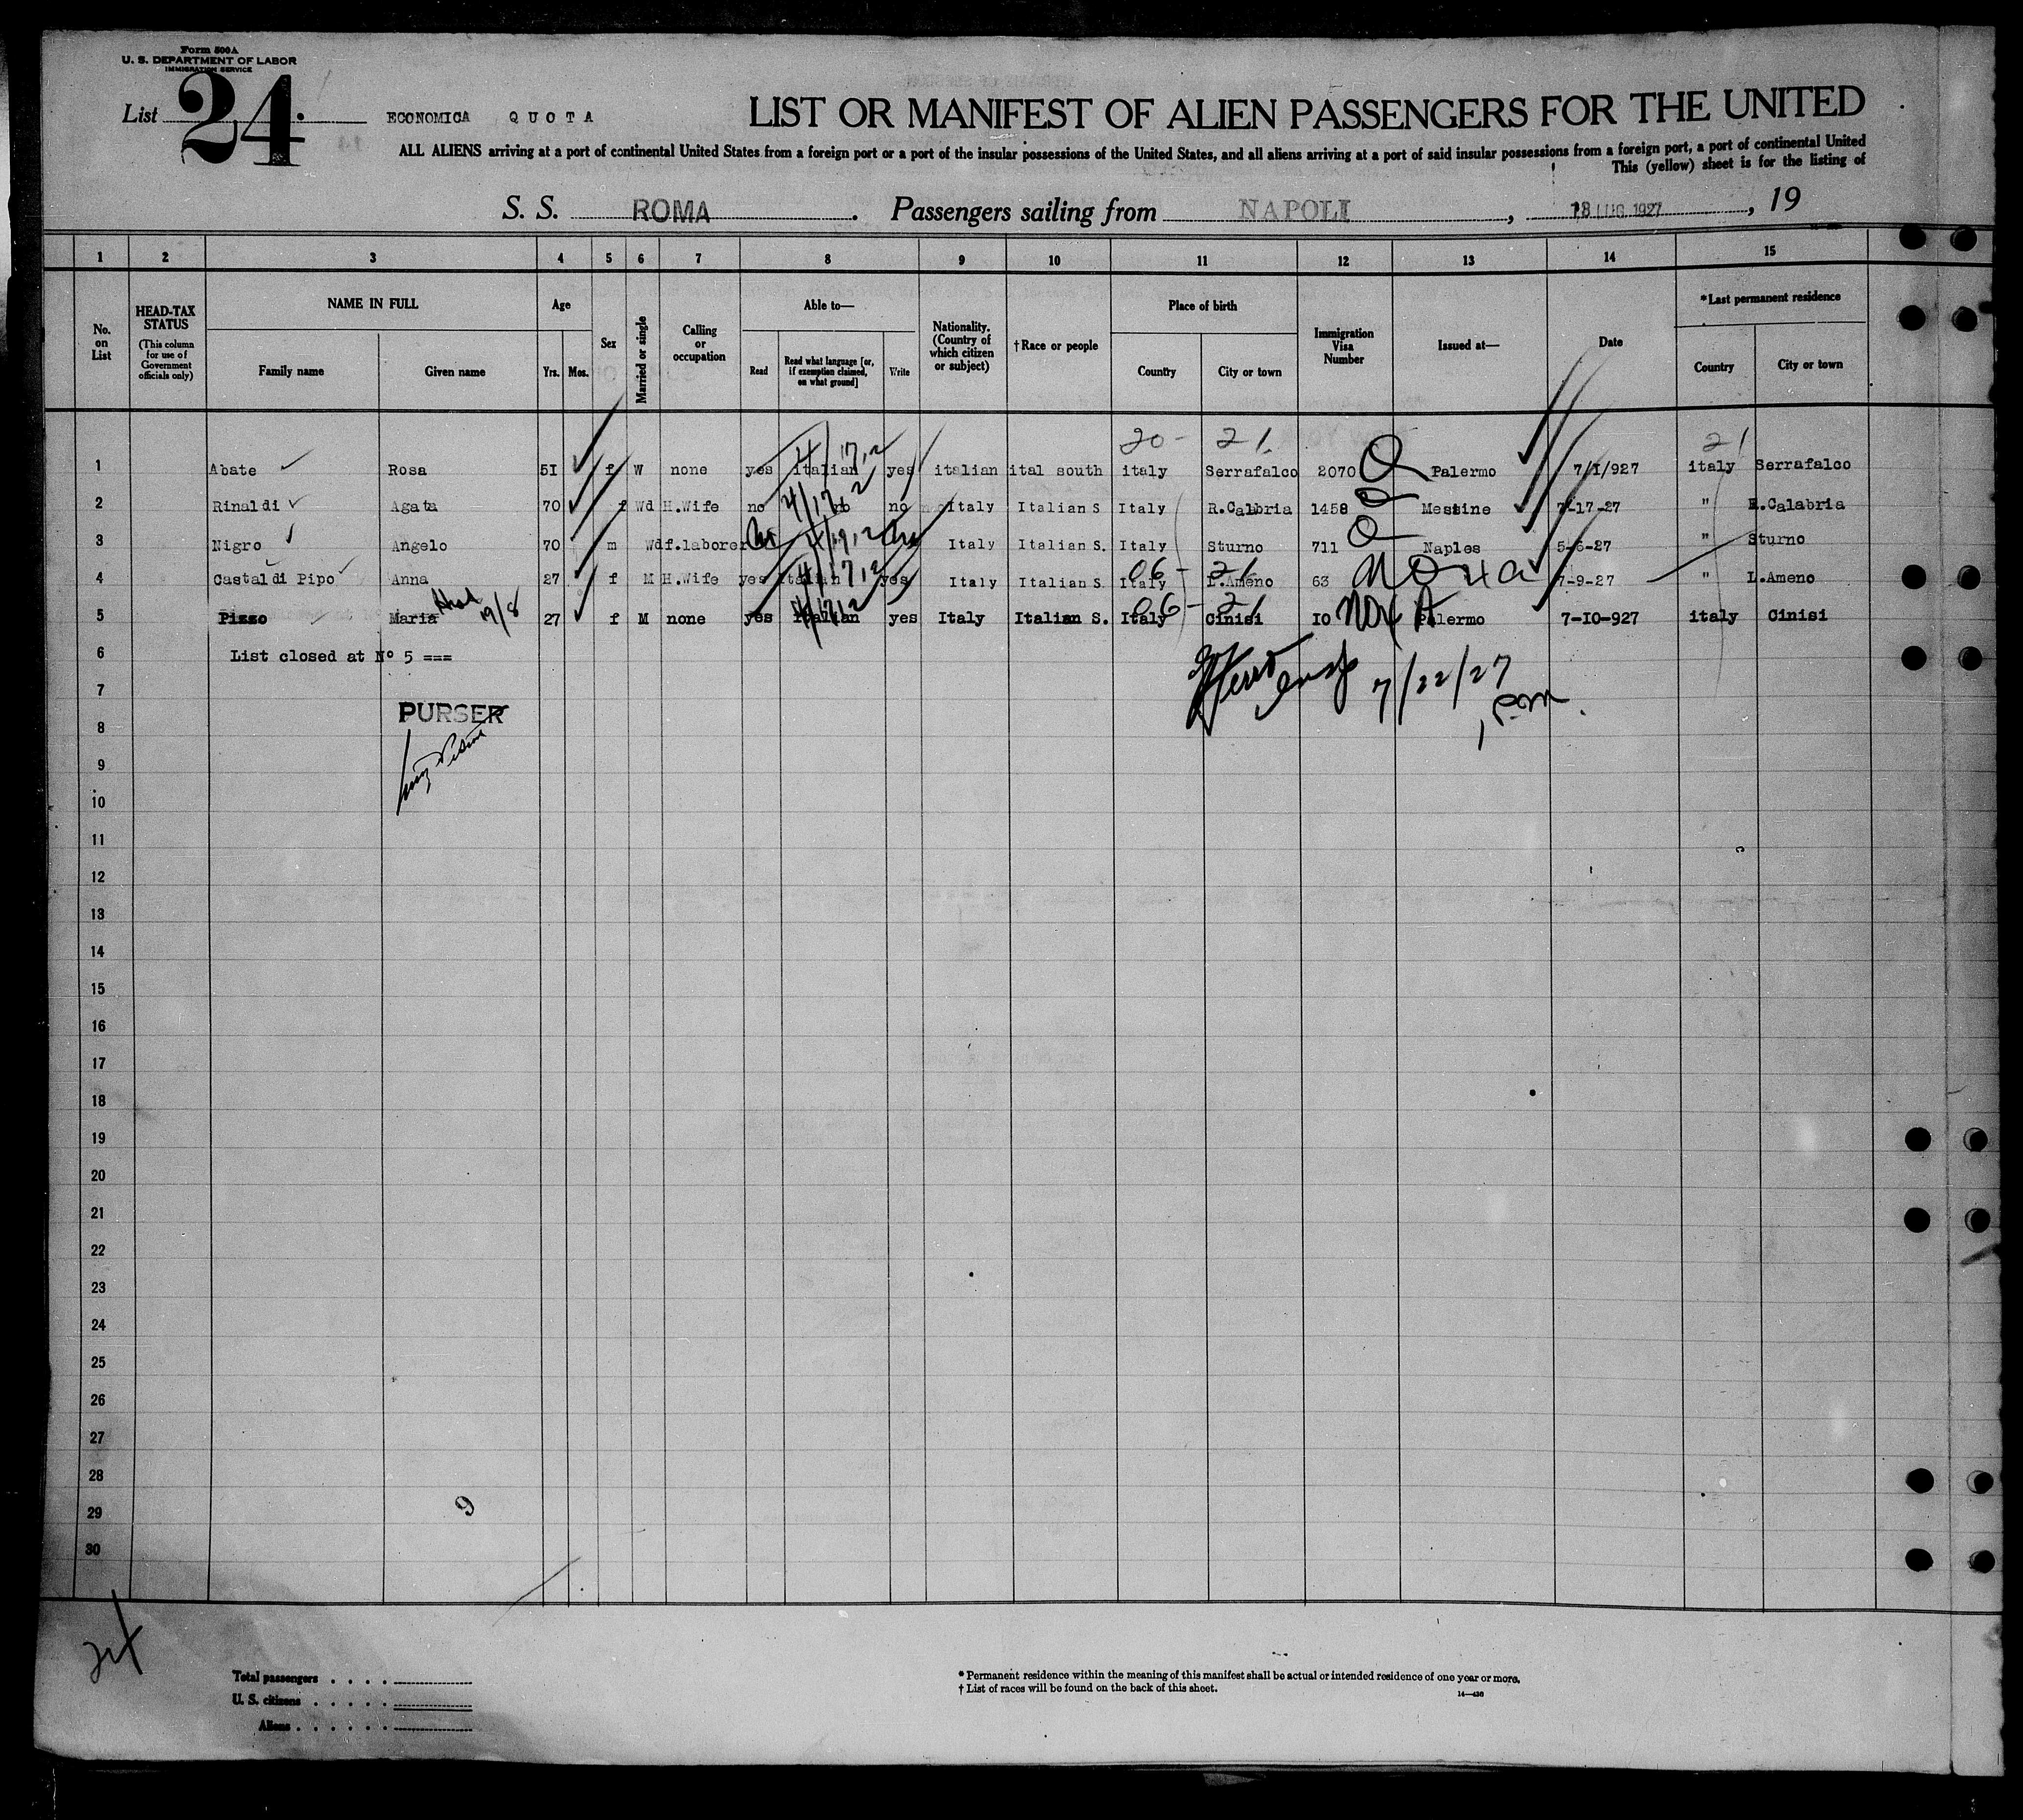 Form 500A
U. S. DEPARTMENT OF LABOR
IMMIGRATION SERVICE
List 24. ECONOMICA QUOTA LIST OR MANIFEST OF ALIEN PASSENGERS FOR THE UNITED
ALL ALIENS arriving at a port of continental United States from a foreign port or a port of the insular possessions of the United States, and all aliens arriving at a port of said insular possessions from a foreign port, a port of continental United
This (yellow) sheet is for the listing of
S. S. ROMA. Passengers sailing from NAPOLI, 18 LUG 1927, 19
1 2 3 4 5 6 7 8 9 10 11 12 13 14 15
No. on List
HEAD-TAX STATUS
(This column for use of Government officials only)
NAME IN FULL
Family name Given name
Age
Yrs. Mos.
Sex
Married or single
Calling or occupation
Able to—
Read Read what language [or, if exemption claimed, on what ground] Write
Nationality. (Country of which citizen or subject)
†Race or people
Place of birth
Country City or town
Immigration Visa Number
Issued at—
Date
*Last permanent residence
Country City or town
20- 21 21
1 Abate Rosa 5I f W none yes italian yes italian ital south italy Serrafalco 2070 Q Palermo 7/I/927 italy Serrafalco
2 Rinaldi Agata 70 f Wd H.Wife no no no Italy Italian S Italy R.Calabria 1458 Q Messine 7-17-27 " R.Calabria
3 Nigro Angelo 70 m Wd f.laborer Italy Italian S. Italy Sturno 711 Q Naples 5-6-27 " Sturno
06- 21
4 Castaldi Pipo Anna 27 f M H.Wife yes Italian yes Italy Italian S. Italy L.Ameno 63 7-9-27 " L.Ameno
06- 21
5 Pizzo Maria 19/8 27 f M none yes Italian yes Italy Italian S. Italy Cinisi IO Palermo 7-IO-927 italy Cinisi
6 List closed at Nº 5 ===
7/22/27
7
PURSER
8
9
10
11
12
13
14
15
16
17
18
19
20
21
22
23
24
25
26
27
28
29
9
30
24
Total passengers . . . .
U. S. citizens . . . . .
Aliens . . . . . .
* Permanent residence within the meaning of this manifest shall be actual or intended residence of one year or more.
† List of races will be found on the back of this sheet.
14—436